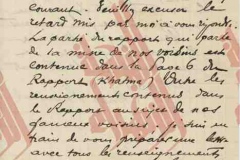 courant. Veuillez excuser le
retard mis par moi à vous répondre.
La partie du rapport qui parle
de la mise de nos voisins est
contenue dans la page 6 du
Rapport . Outre les
renseignements contenus dans
le Rapport au sujet de nos
fameux voisins, je suis en
train de vous préparer une liste
avec tous les renseignements